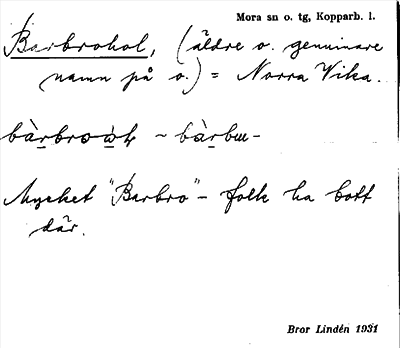 Mora sn o. tg, Kopparb. l.
Barbrohol, (äldre o. genuinare
namn på o.) = Norra Vika.
~ 
Mycket "Barbro"- folk ha bott
där.
Bror Lindén 1931